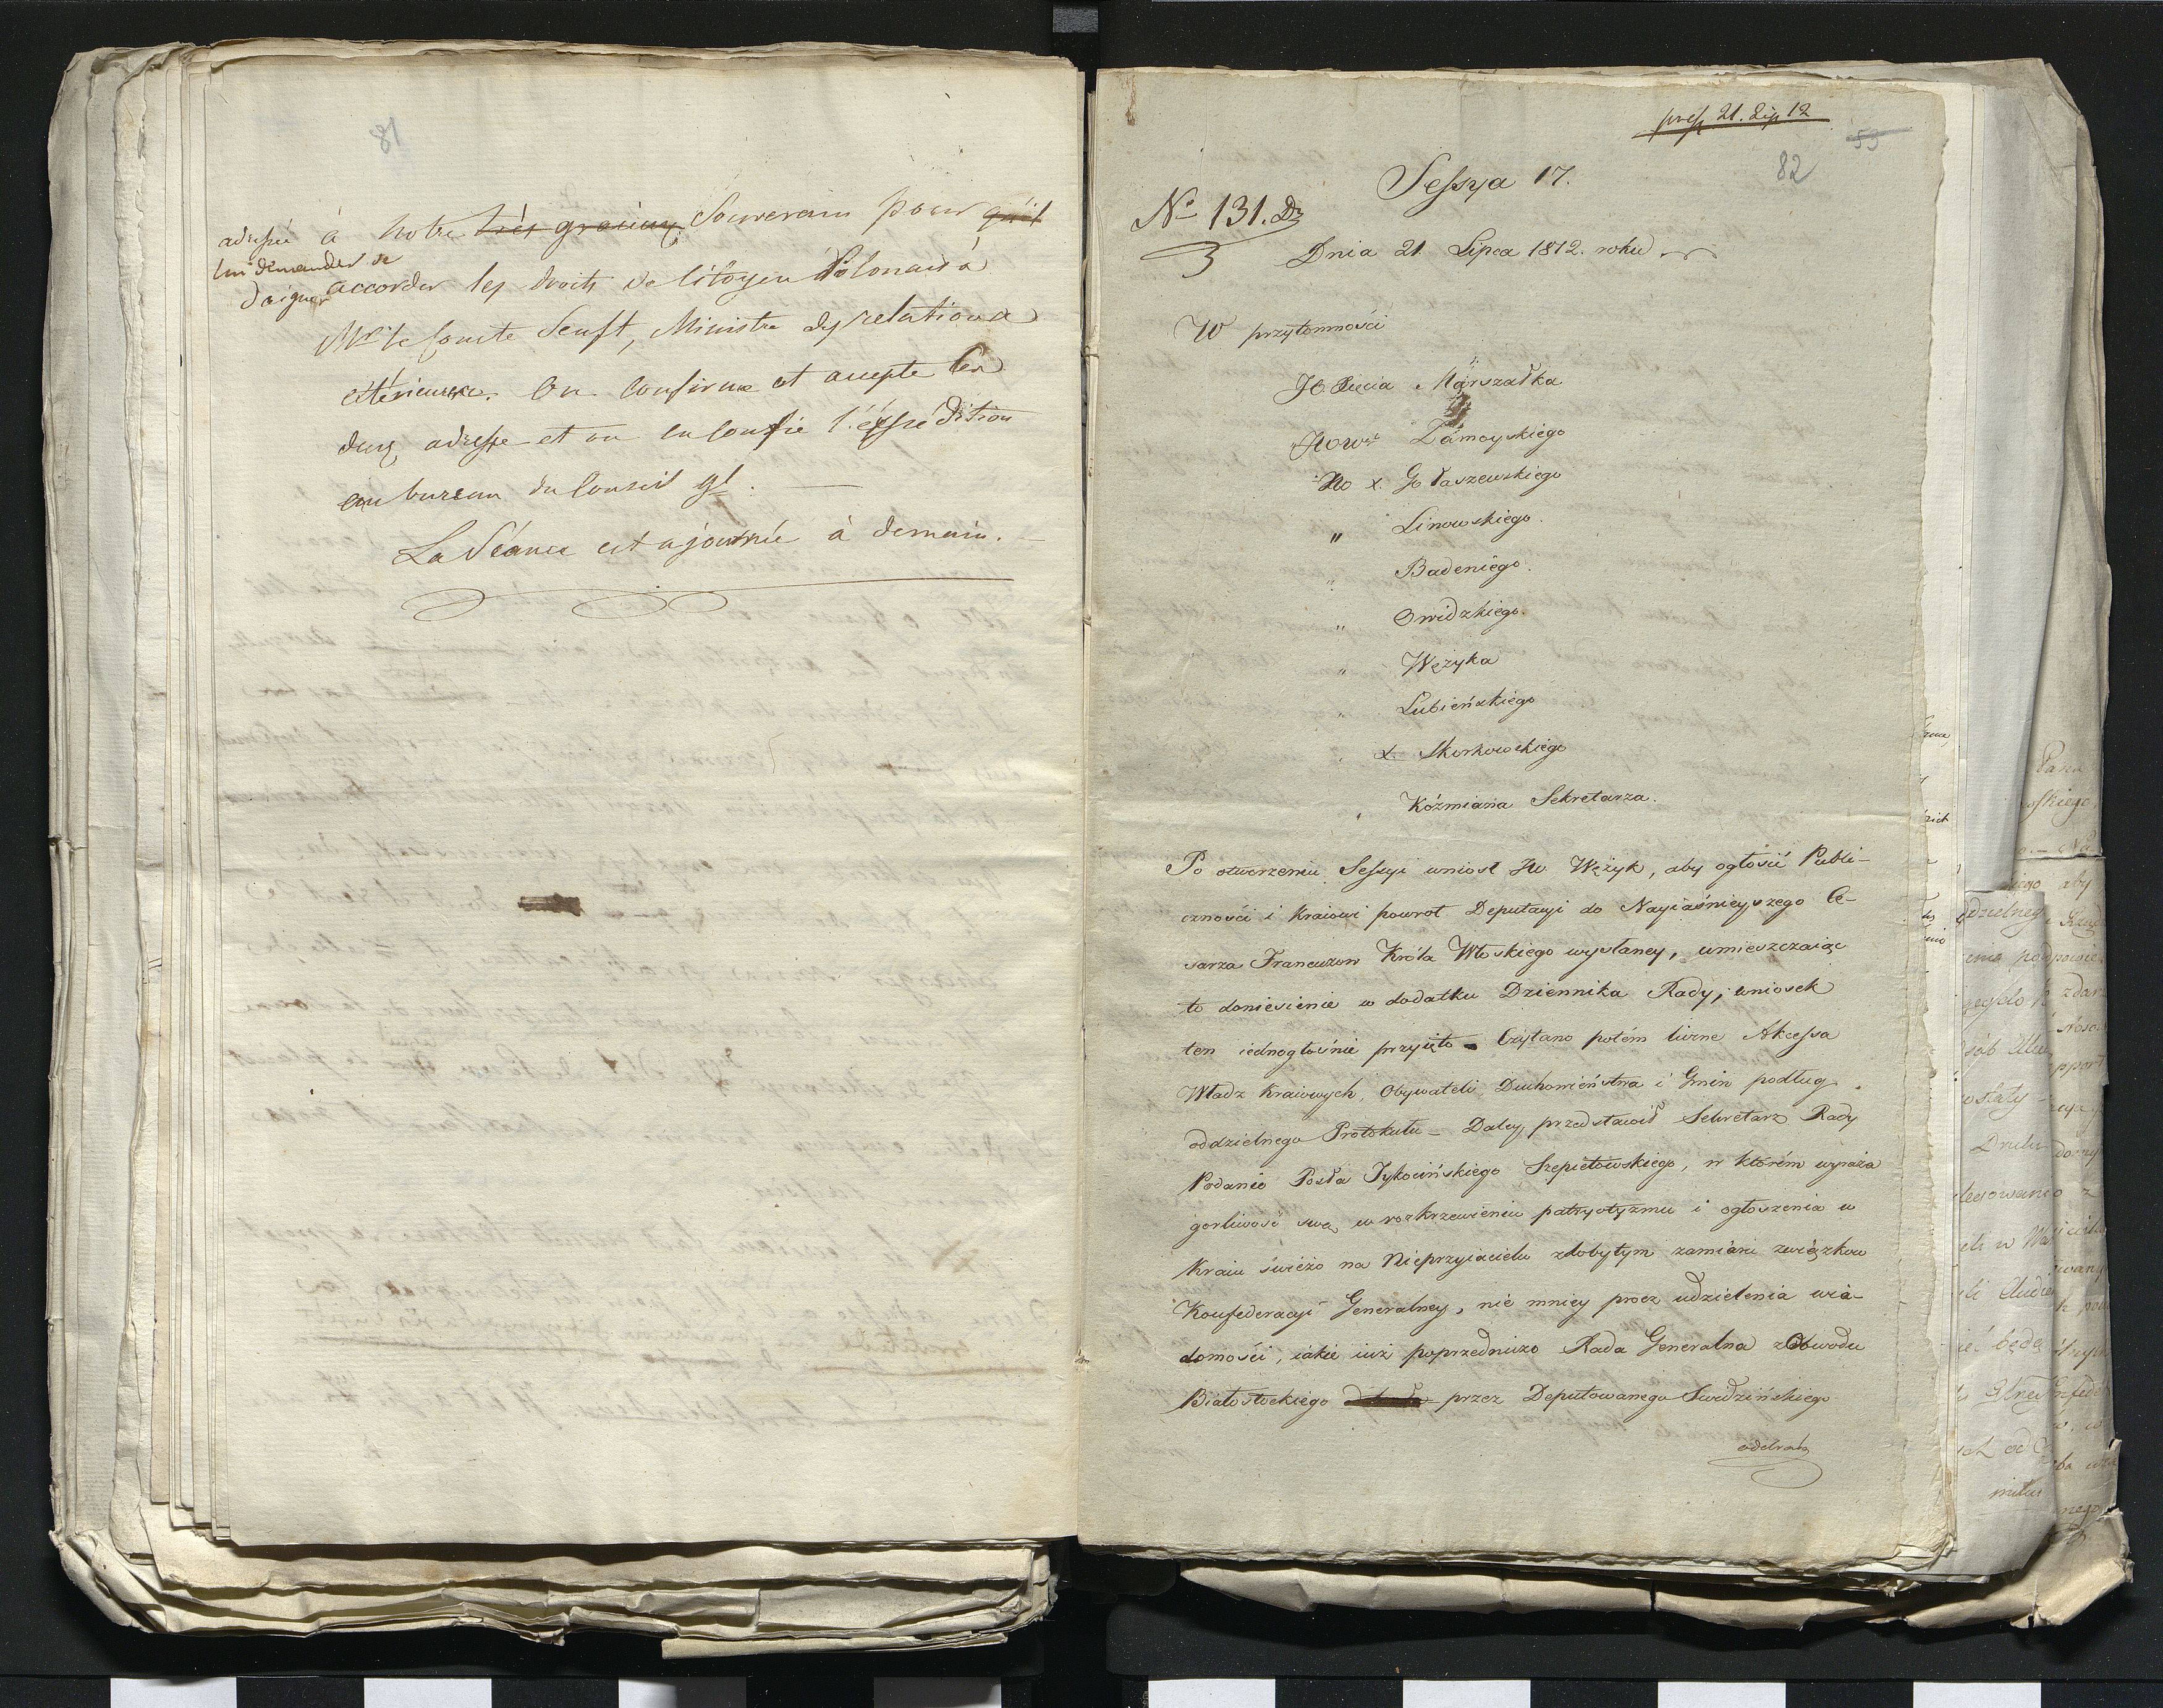 81
adressée à notre très gracieux Souverain pour qu'il
lui demander de
daigner accorder les droits de Citoyen Polonais à
Mr le Comte Senft, Ministre des relations
extérieures. On confirme et accepte les
deux adresses et on en confie l'éxpédition
au bureau du Conseil gl. —
La Séance est ajournée à demain. —
pres 21. Lip 12
55
82
Sessya 17.
No 131. Dz
Dnia 21 Lipca 1812. roku
W przytomności
JO. Xięcia Marszałka
JOWo Zamoyskiego
JW X. Gołaszewskiego
" Linowskiego.
" Badeniego.
" Owidzkiego.
" Wężyka
" Lubieńskiego
" X. Skorkowskiego
" Koźmiana Sekretarza.
Po otworzeniu Sessyi wniosł JW Wężyk, aby ogłosić Publi-
czności i Kraiowi powrot Deputacyi do Nayiaśnieyszego Ce-
sarza Francuzow Króla Włoskiego wysłaney, umieszczaiąc
te doniesienie w dodatku Dziennika Rady; wniosek
ten iednogłośnie przyięto - Czytano potém liczne Akcessa
Władz Kraiowych, Obywateli, Duchowieństwa i Gmin podług
oddzielnego Protokułu - Daley przedstawił Sekretarz Rady
Podanie Posła Tykocińskiego Szepietowskiego, w którém wyraża
gorliwość swą w rozkrzewieniu patryotyzmu i ogłoszenia w
Kraiu świéżo na Nieprzyiacielu zdobytym zamiaru związkow
Konfederacyi Generalney, nie mniey procz udzielenia wia-
domości, iakie iuż poprzedniczo Rada Generalna z Obwodu
Białostockiego przez Deputowanego Swidzińskiego
odebrała